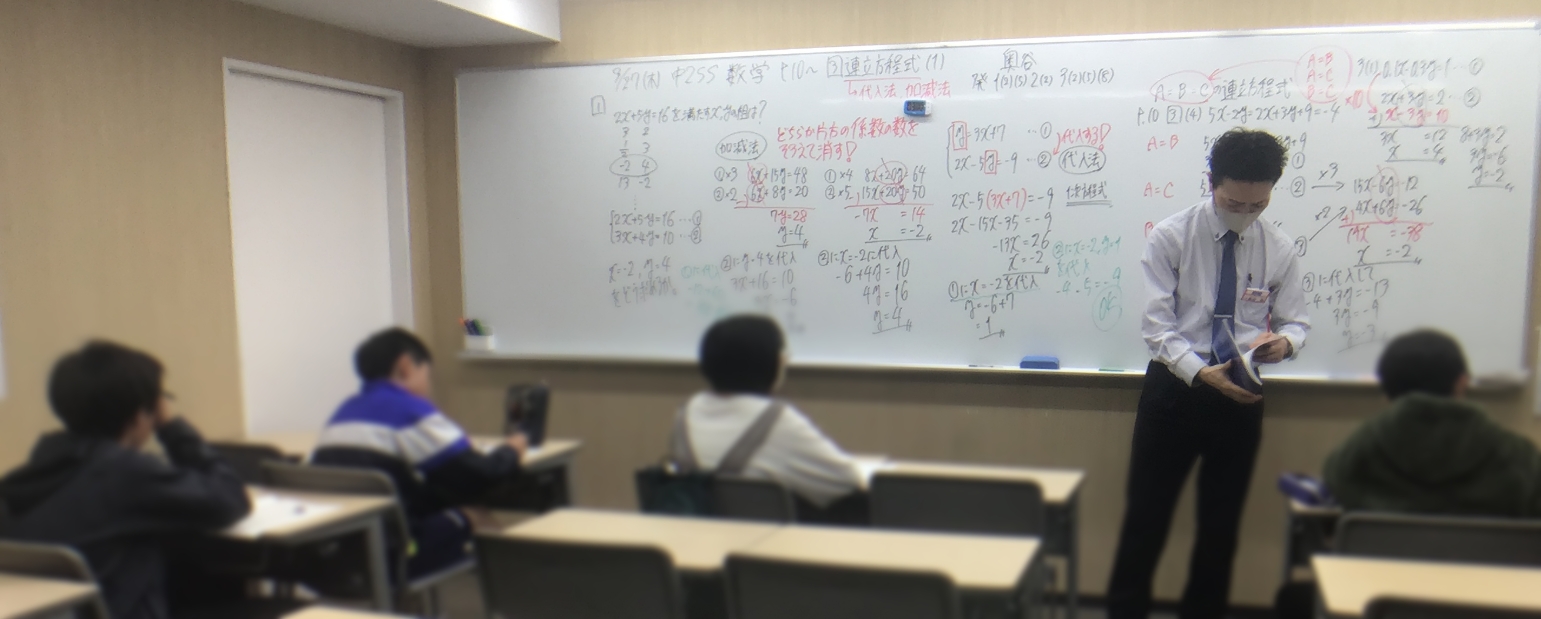 中2SS 数学 P.10～ 3 連立方程式(1)
↳代入法 加減法
奥谷
発 1(2)(5) 2(2) 3(2)(5)(8)
1
2x+5y=16を満たすx,yの組は?
3 2
-2 4
13 -2
2x+5y=16 …①
3x+4y=10 …②
x=-2, y=4
加減法
どちらか片方の係数の数を
そろえて消す!
①×3 6x+15y=48
②×2 6x+8y=20
7y=28
y=4
②に y=4を代入
3x+16=10
①×4 8x+20y=64
②×5 15x+20y=50
-7x =14
x =-2
②に x=-2に代入
-6+4y=10
4y=16
y=4
y=3x+7 …①
2x-5y=-9 …②
代入する!
代入法
2x-5(3x+7)=-9
2x-15x-35=-9
-13x=26
x=-2
①に x=-2を代入
y=-6+7
=1
を代入
-4-5=-9
OK
A=B=Cの連立方程式
A=B
A=C
B=C
P.10 3(4) 5x-2y=2x+3y+9=-4
A=B
A=C
②
×3
2x+3y=2 …②
3x =12
x =4
8+3y=2
3y=-6
y=-2
15x-6y=-12
4x+6y=-26
x =-2
③に代入して
-4+3y=-13
3y=-9
y=-3